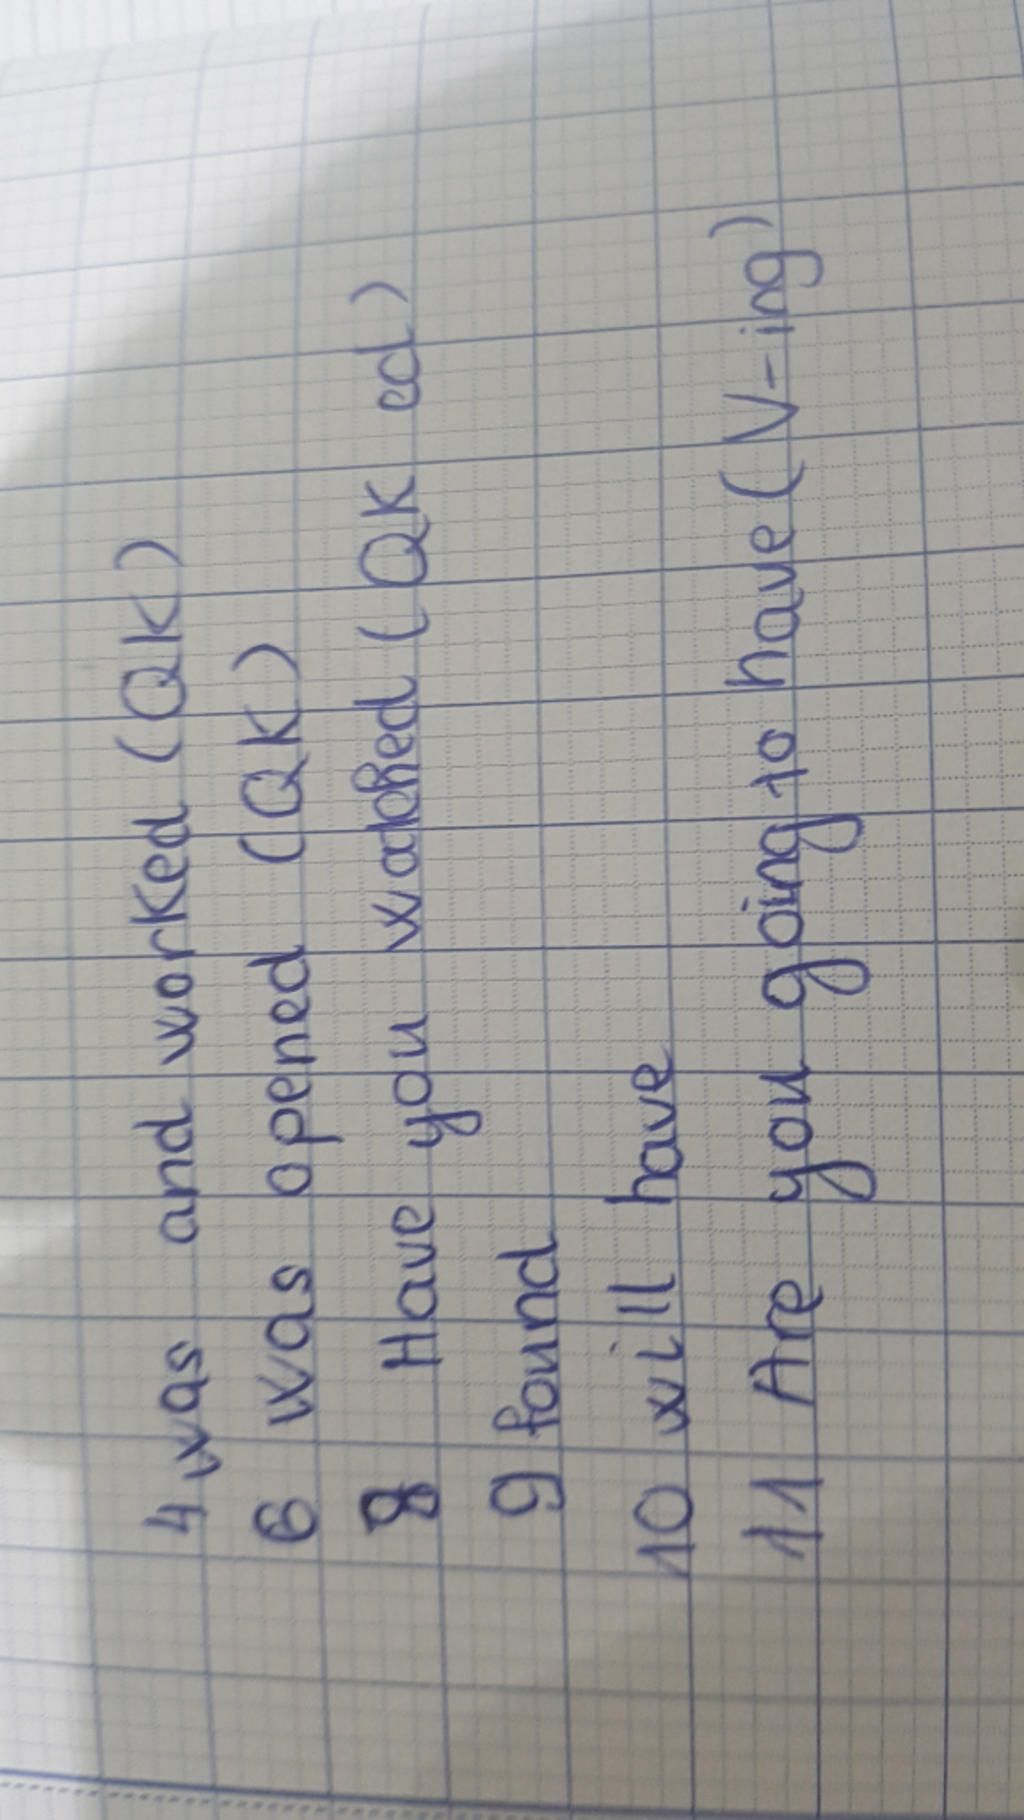 4 was and worked (QK)
6 was opened (QK)
8 Have you watched (QK ed)
9 found
10 will have
11 Are you going to have (V-ing)